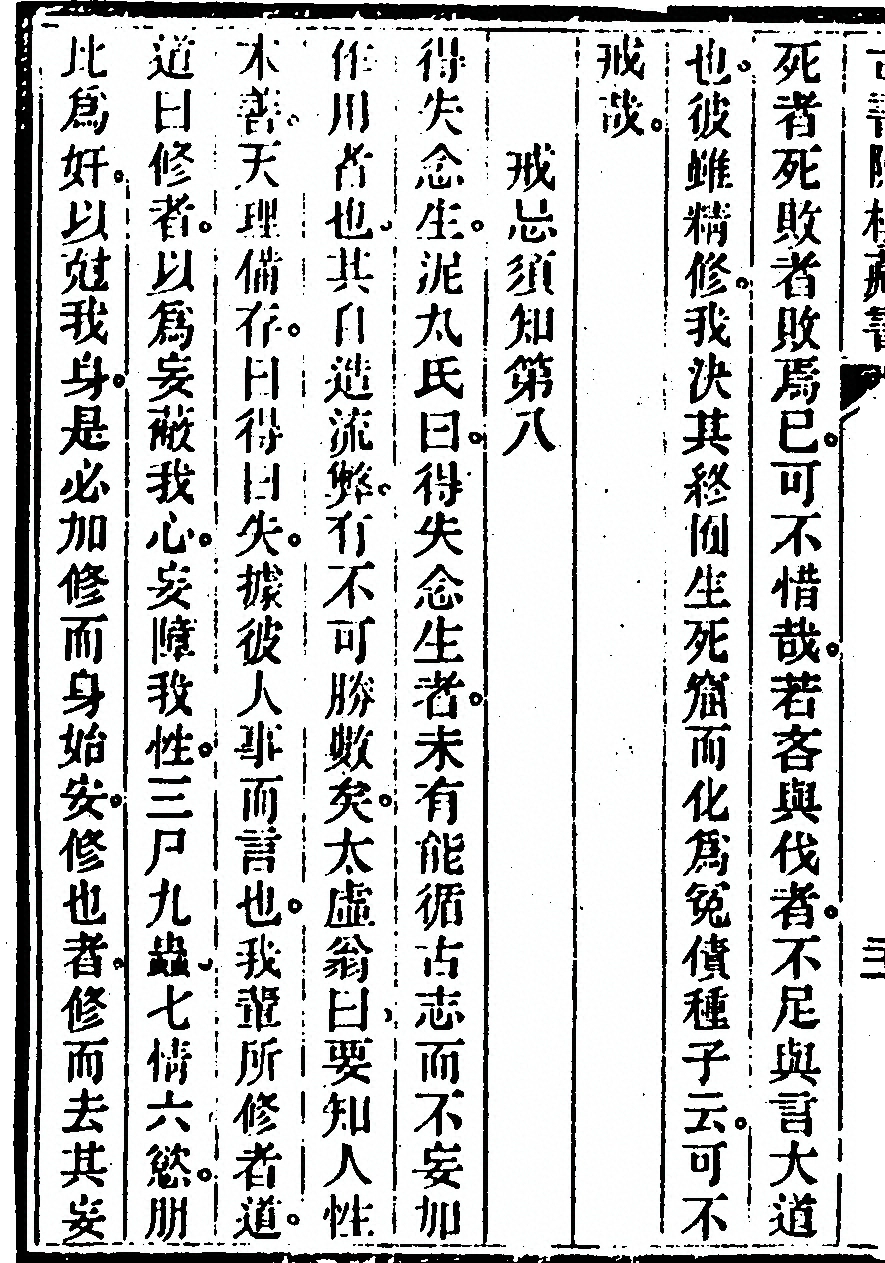 古書隱樓藏書
三
死者死敗者敗焉已。可不惜哉。若吝與伐者。不足與言大道
也。彼雖精修。我決其終囿生死窟而化為冤債種子云。可不
戒哉。
戒忌須知第八
得失念生。泥丸氏曰。得失念生者。未有能循古志而不妄加
作用者也。其自造流弊。有不可勝數矣。太虛翁曰、要知人性
本善。天理備存。曰得曰失。據彼人事而言也。我輩所修者道。
道曰修者。以爲妄蔽我心。妄障我性。三尸九蟲、七情六慾。朋
比爲奸。以尅我身。是必加修而身始安。修也者。修而去其妄